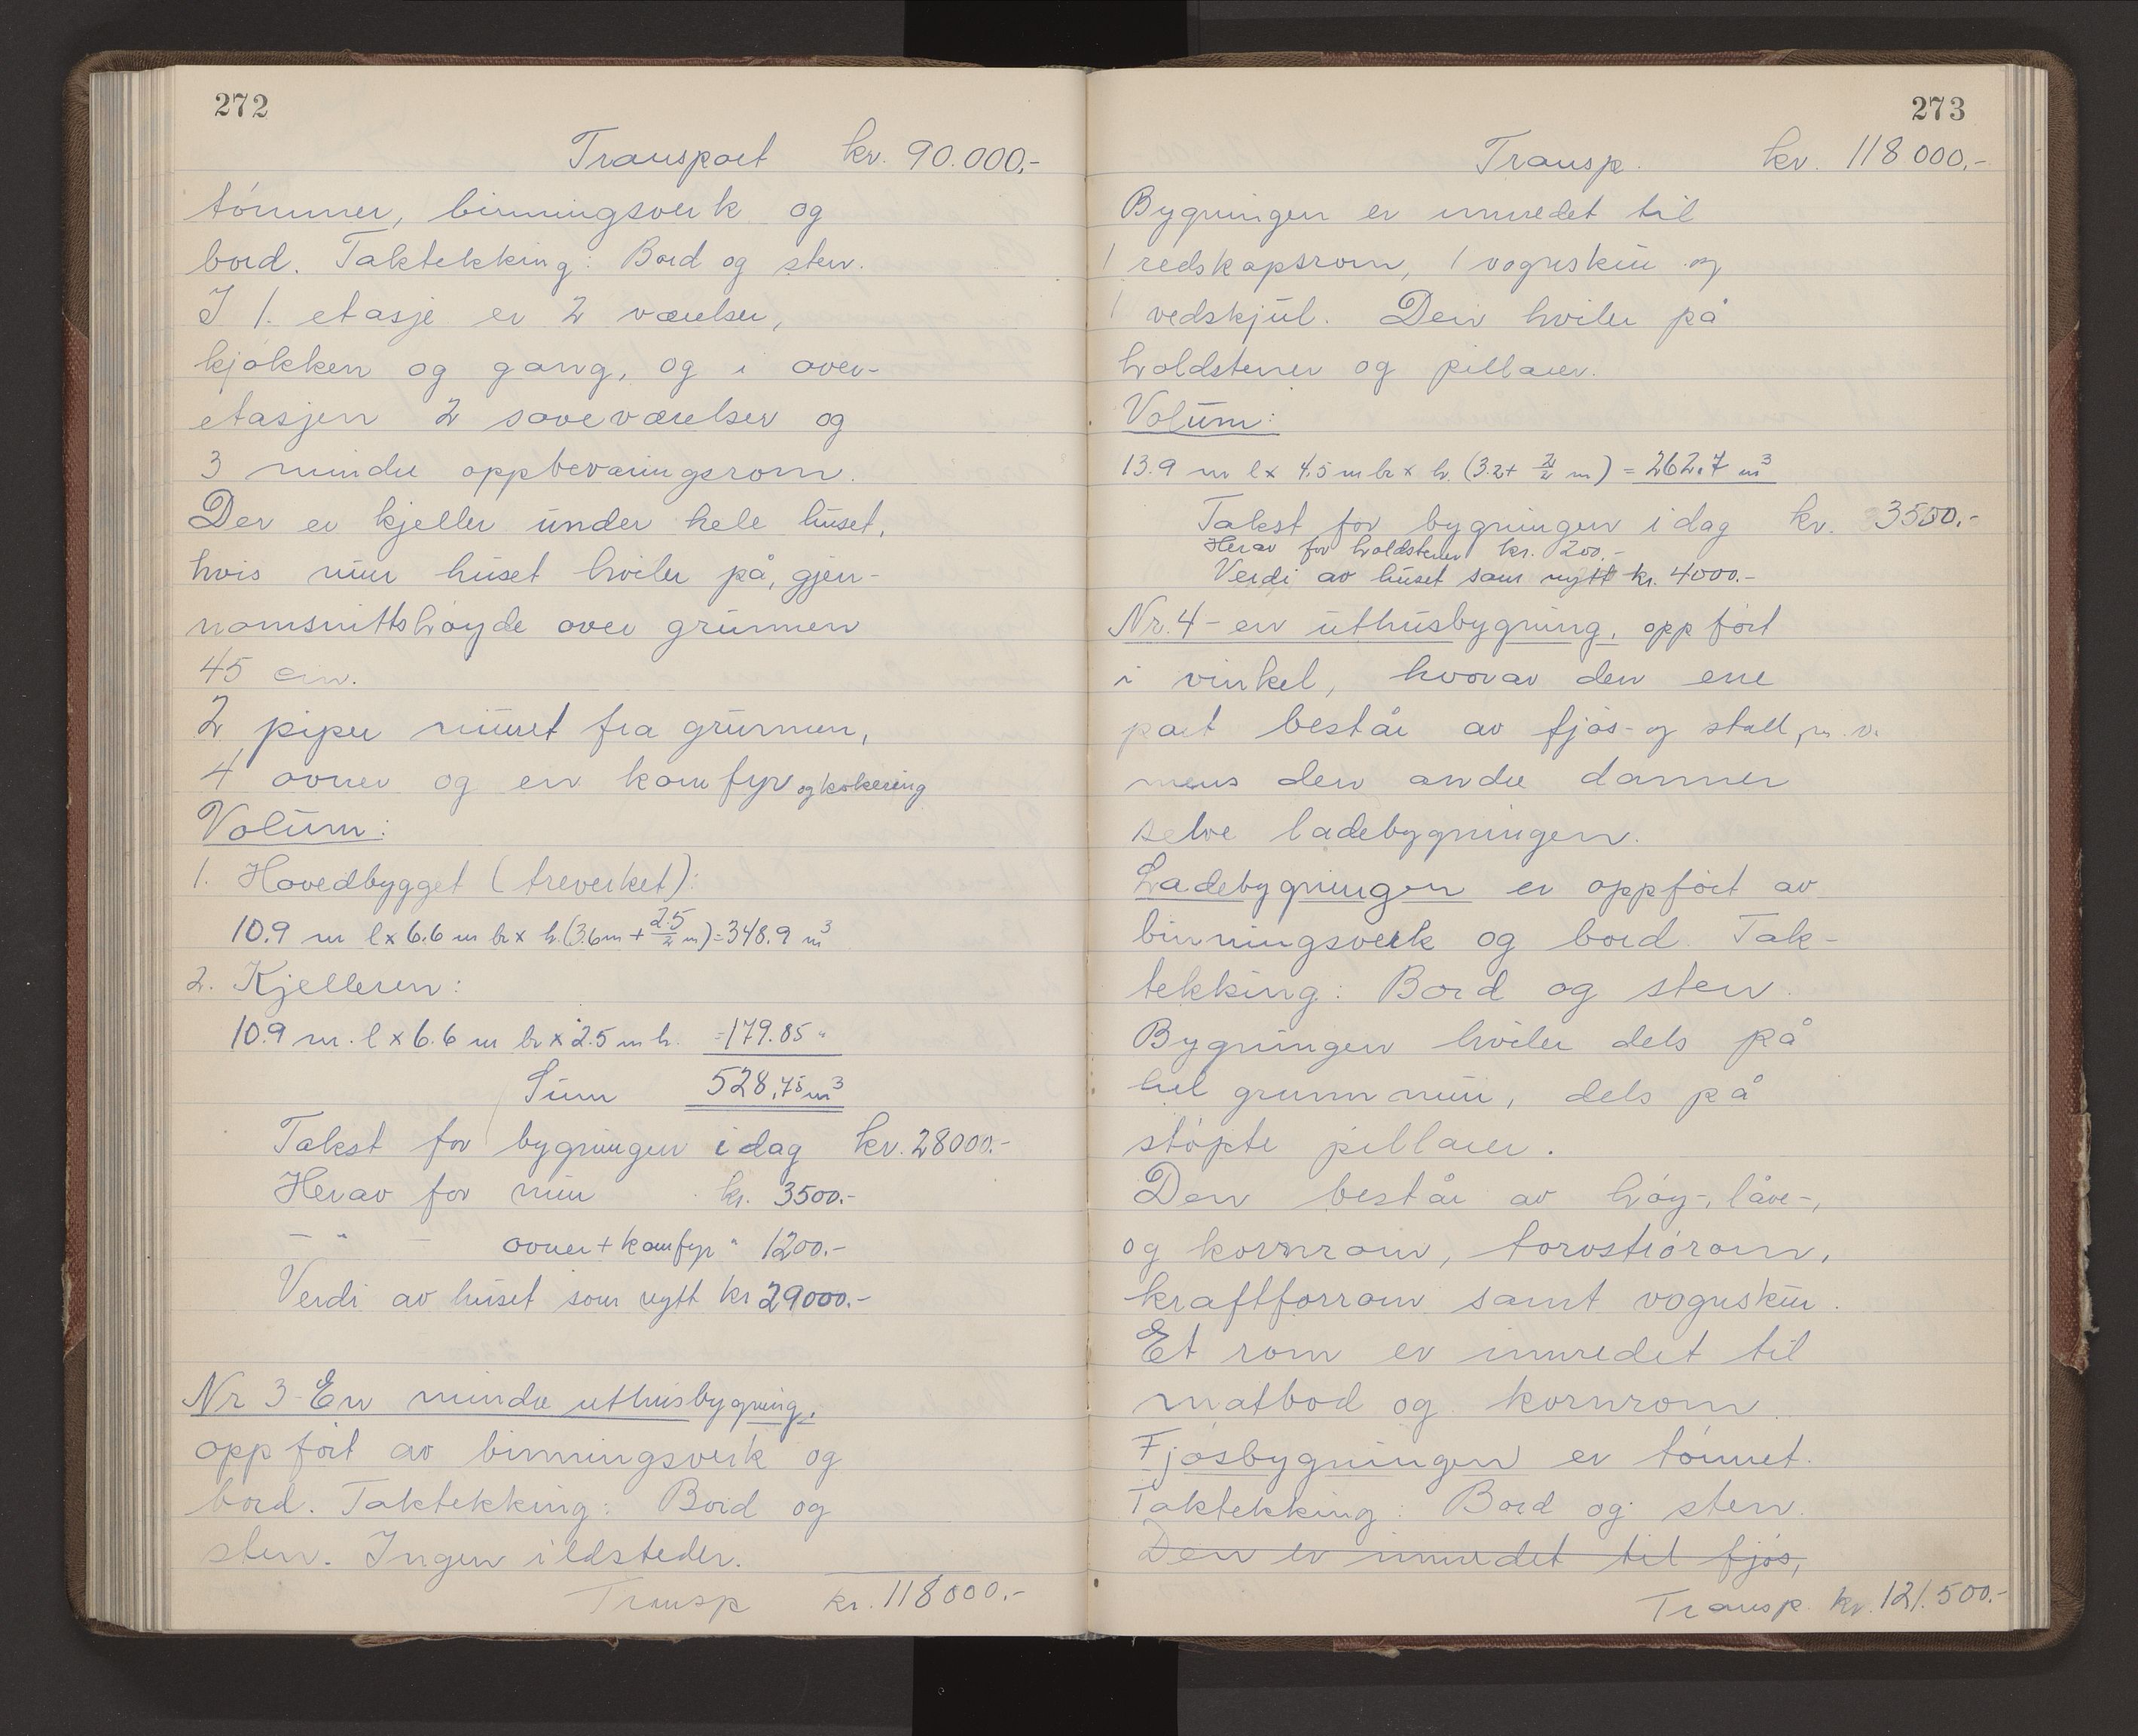 272
Transport kr. 90.000,-
tömmer, binningsverk og
bord. Taktekking: Bord og sten.
I 1. etasje er 2 værelser,
kjøkken og gang, og i over-
etasjen 2 soveværelser og
3 mindre oppbevaringsrom.
Der er kjeller under hele huset,
hvis mur huset hviler på, gjen-
nomsnittshøyde over grunnen
45 cm.
2 piper muret fra grunnen,
4 ovner og en komfyr og kokering
Volum:
1. Hovedbygget (treverket):
10.9 m l x 6.6 m br x h.(3.6m + 2.5/2 m) = 348.9 m³
2. Kjelleren:
10.9 m. l x 6.6 m br x 2.5 m h. = 179.85 "
Sum 528,75 m³
Takst for bygningen idag kr. 28000.-
Herav for mur kr. 3500.-
- " - ovner + komfyr " 1200.-
Verdi av huset som nytt kr 29000.-
Nr 3 - En mindre uthusbygning,
oppført av binningsverk og
bord. Taktekking: Bord og
sten. Ingen ildsteder.
Transp kr. 118000.-
273
Transp. kr. 118000,-
Bygningen er innredet til
1 redskapsrom, 1 vognskur og
1 vedskjul. Den hviler på
holdstener og pillarer.
Volum:
13.9 m l x 4.5 m br x h. (3.2 + 2/2 m) = 262.7 m³
Takst for bygningen idag kr. 3500.-
Herav for holdstener kr. 200.-
Verdi av huset som nytt kr. 4000.-
Nr. 4 - en uthusbygning, oppført
i vinkel, hvorav den ene
part består av fjøs- og stall, m. v.
mens den andre danner
selve ladebygningen.
Ladebygningen er oppført av
binningsverk og bord. Tak-
tekking: Bord og sten.
Bygningen hviler dels på
hel grunnmur, dels på
støpte pillarer.
Den består av høy-, låve-,
og kornrom, torvstrørom,
kraftforrom samt vognskur.
Et rom er innredet til
matbod og kornrom.
Fjøsbygningen er tømret.
Taktekking: Bord og sten.
Den er innredet til fjøs,
Transp. kr. 121.500.-